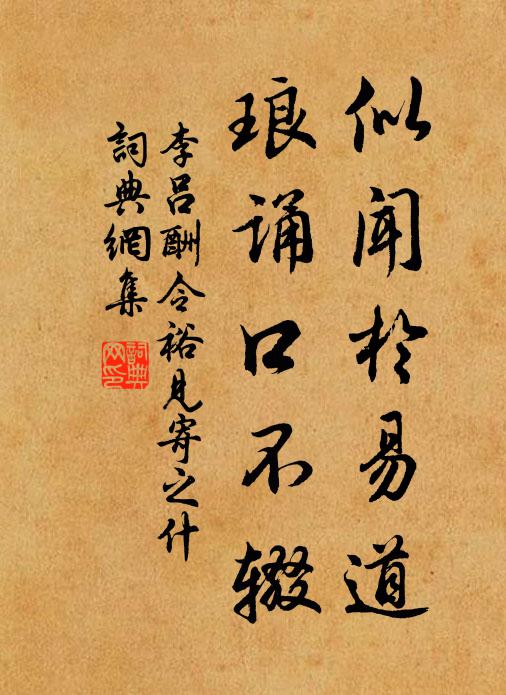 似闻於易道
琅诵口不辍
李吕酬令裕见寄之什
詞典網集
詞典网印